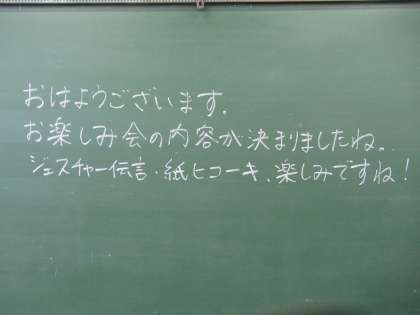 おはようございます。
お楽しみ会の内容が決まりましたね。
ジェスチャー伝言・紙ヒコーキ、楽しみですね!